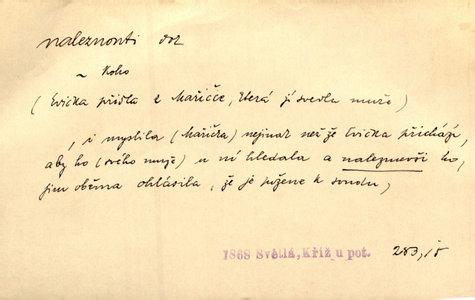 naleznouti dok
~ koho
(Evička přišla k Maričce, která jí svedla muže)
, i myslila (Marička) nejinak než že Evička přichází,
aby ho (svého muže) u ní hledala a naleznuvši ho,
jim oběma ohlásila, že je požene k soudu,
1868 Světlá, Kříž u pot. 283,15